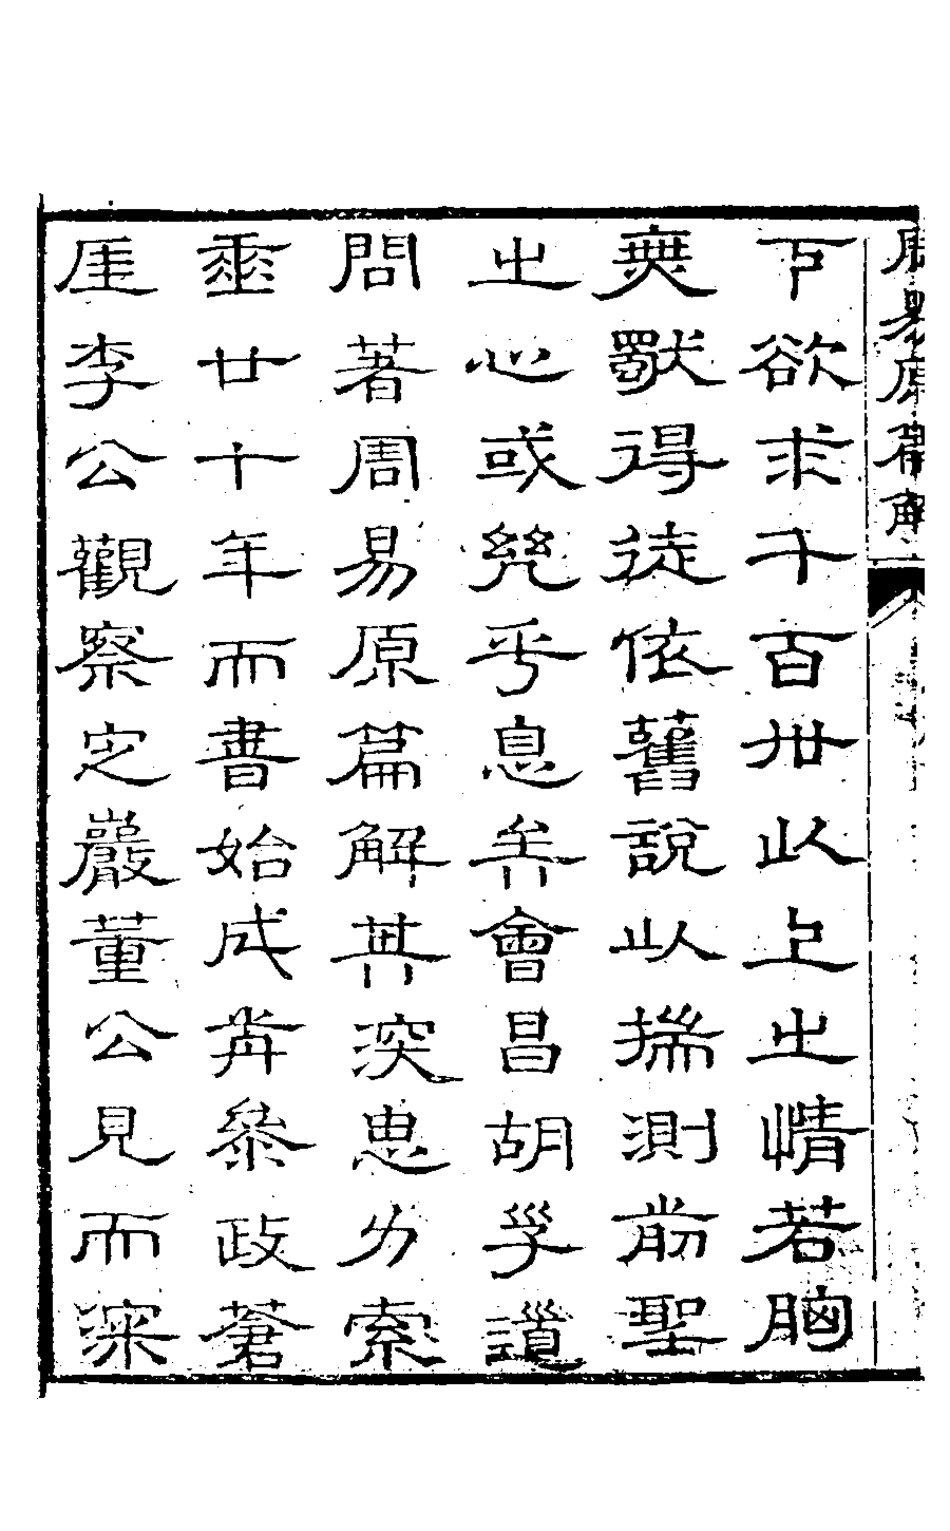 周易原篇解
下欲求千百世以上之情若胸
無獸得徒依舊說以揣測前聖
之心或幾乎息矣會昌胡學道
問著周易原篇解其深思力索
垂廿十年而書始成前參政蒼
厓李公觀察定巖董公見而深